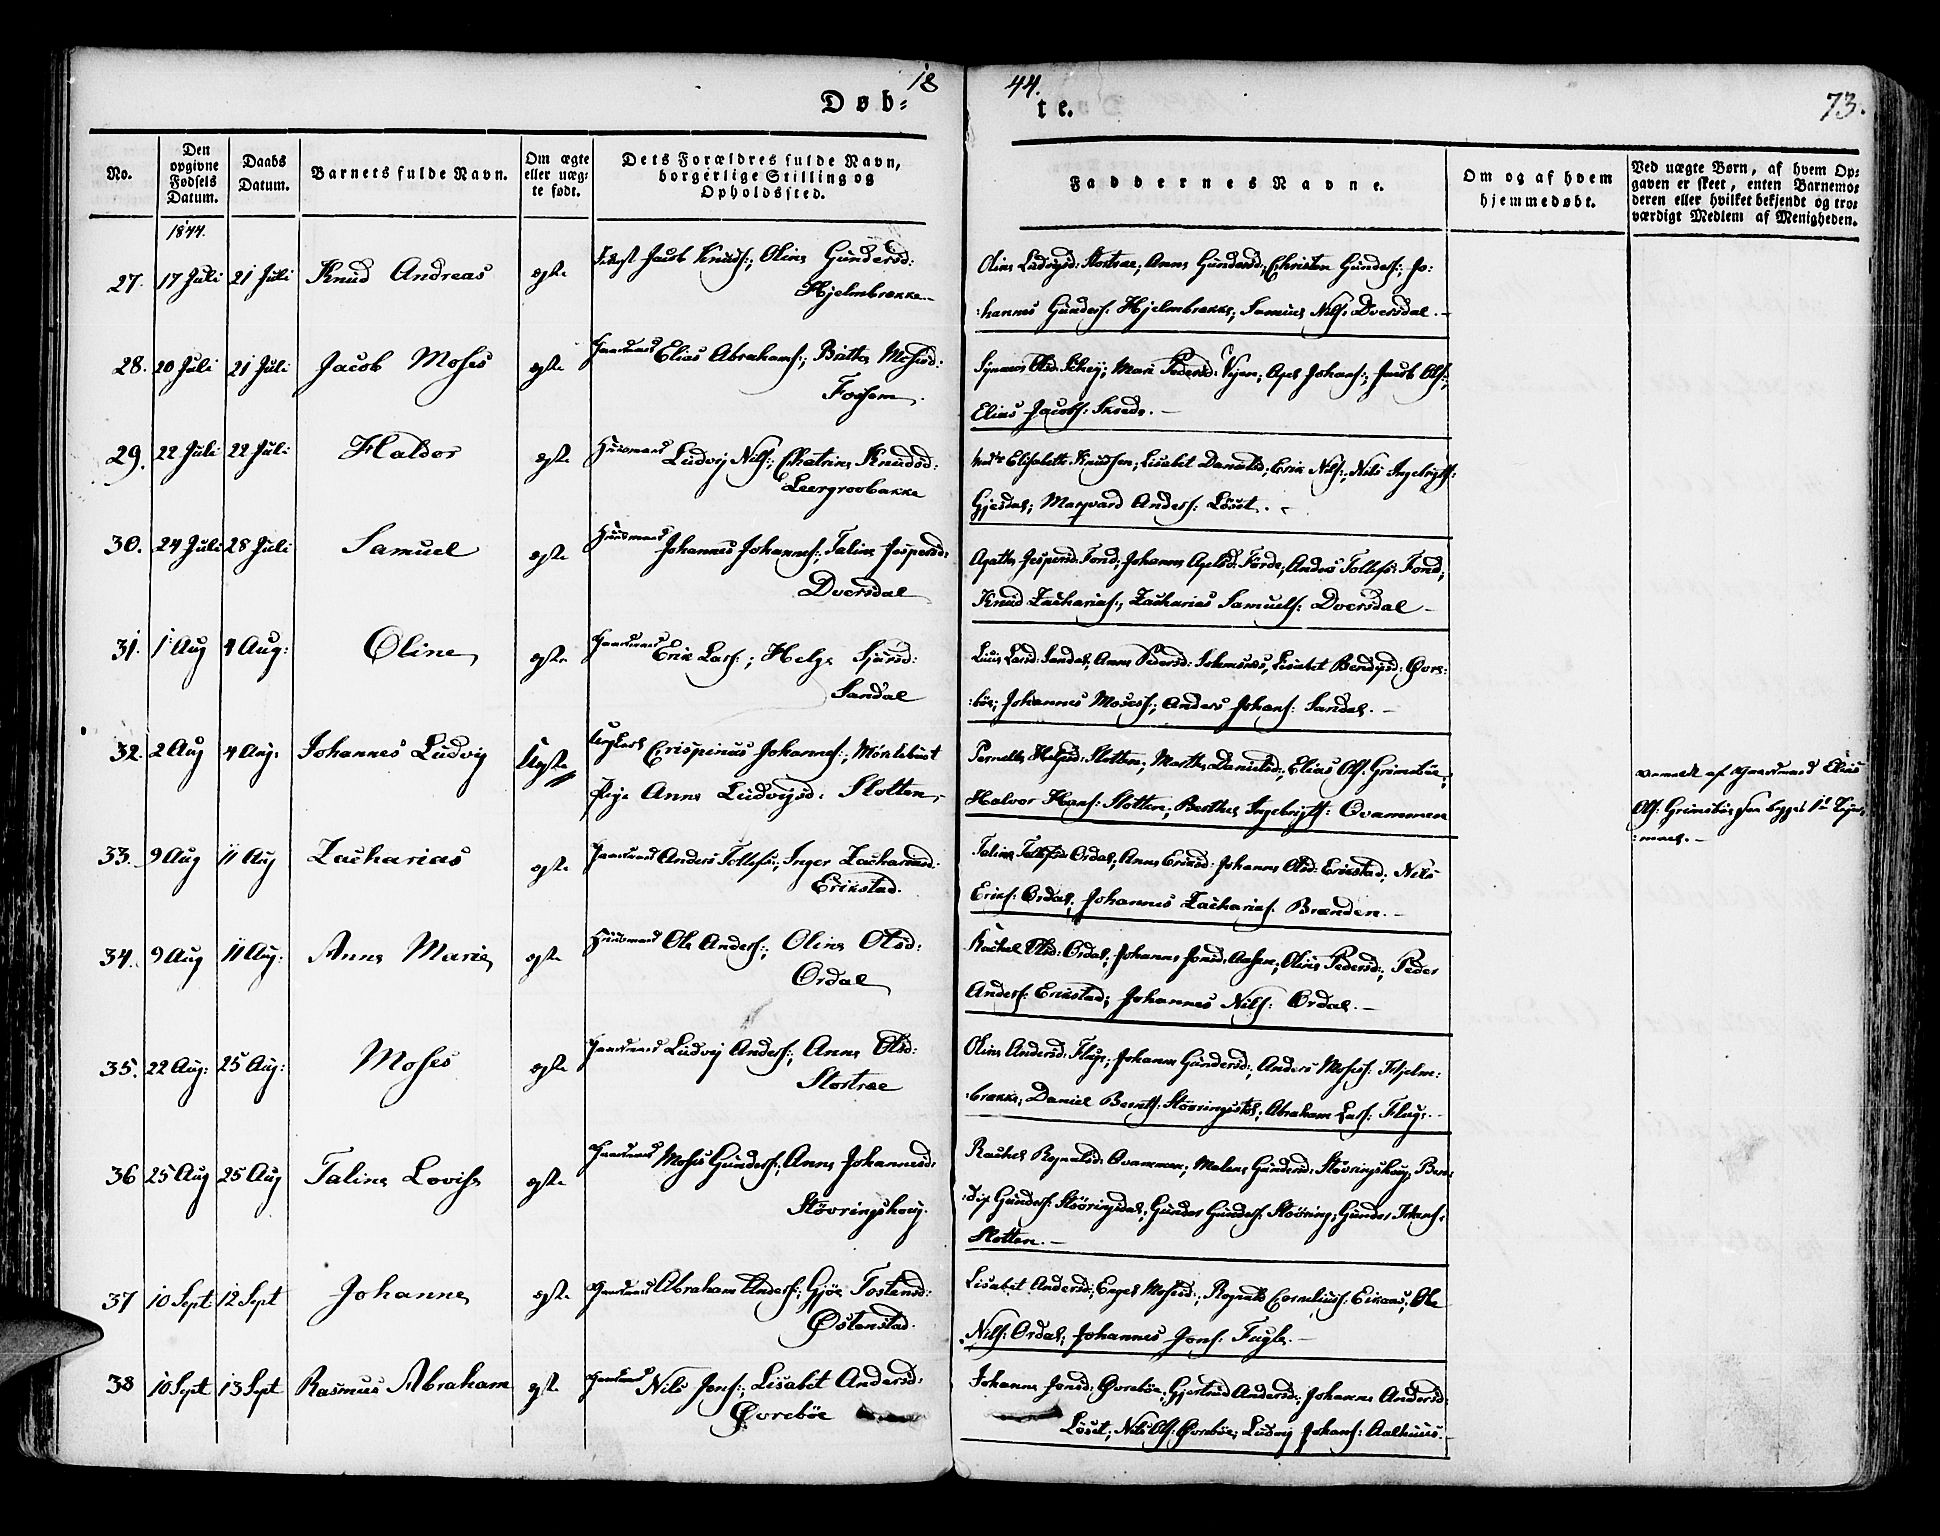 1844.
Døb-
te.
73.
No.
Den opgivne Fødsels Datum.
Daabs Datum.
Barnets fulde Navn.
Om ægte eller uæg-te født.
Dets Forældres fulde Navn, borgerlige Stilling og Opholdssted.
Faddernes Navne.
Om og af hvem hjemmedøbt.
Ved uægte Børn, af hvem Op-
gaven er skeet, enten Barnemo-
deren eller hvilket bekjendt og tro-
værdigt Medlem af Menigheden.
1844.
27. 17 Juli 21 Juli Knud Andreas egte Jacob Knuds:, Oline Gundersd:
Hjelmbrække
Oline Ludvigsd: Stortræe, Anne Gundersd:, Christen Gunders:, Jo-
hannes Gunders: Hjelmbrække, Samuel Nils: Dvergsdal.
28. 20 Juli 21 Juli Jacob Moses egte Gaardmand Elias Abrahams:, Brithe Mosesd:
Fossem
Marie Pedersd: Vyen, Johans:, Jacob Ols:
Elias Jacobs: Skrede.
29. 22 Juli 22 Juli Haldor egte Huusmand Ludvig Nils:, Chatrine Knudsd:
Leergroobakke
Elisabeth Knudsen, Lisabet Danielsd:, Erik Nils:, Nils Ingebrigts:
Gjesdal, Marqvard Anders: Löset.
30. 24 Juli 28 Juli Samuel egte Huusmand Johannes Johannes:, Taline Jespersd:
Dvergsdal
Agathe Jespersd: Fond, Johanne Förde, Anders Tollefs: Fond,
Knud Zacharias:, Zacharias Samuels: Dvergsdal
31. 1 Aug 4 Aug: Oline egte Gaardmand Erik Lars:, Helge Sjursd:
Sandal
Larsd: Sandal, Anne Pedersd: Lisabet Bendixd: Øvre-
böe, Johannes Moses:, Anders Johans: Sandal.
32. 2 Aug 4 Aug. Johannes Ludvig Uegte Ungkarl Crispinus Johannes: Möklebust
Pige Anne Ludvigsd: Slotten
Pernelle Helgesd: Slotten, Marthe Danielsd:, Elias Ols: Grimsböe,
Halvor Hans: Slotten, Berthe Ingebrigts: Qvammen
Anmeldt af Gaardmand Elias
Ols: Grimsböe
33. 9 Aug 11 Aug Zacharias egte Gaardmand Anders Tollefs:, Inger Zachariasd:
Erikstad.
Taline Tollefsd: Ordal, Anne Eriksd: Johanne Olsd: Erikstad, Nils
Eriks: Ordal, Johannes Zacharias: Brænden.
34. 9 Aug 11 Aug: Anne Marie egte Huusmand Ole Anders:, Oline Olsd:
Ordal
Rachel Olsd: Ordal, Johanne Jonsd: Aasen, Oline Pedersd:, Peder
Anders: Erikstad, Johannes Nils: Ordal.
35. 22 Aug: 25 Aug: Moses egte Gaardmand Ludvig Anders:, Anne Olsd:
Stortræe
Oline Andersd: Flugge, Johanne Gundersd:, Anders Moses: Hjelm-
brække, Daniel Bernts: Stövringsdal, Abraham Lars: Flugge.
36 25 Aug 25 Aug Taline Lovise egte Gaardmand Moses Gunders:, Anne Johannesd:
Stövringshoug.
Rachel Rognaldsd: Qvammen, Malene Gundersd: Stövringshoug, Ben-
dix Gunders: Stövringsdal, Gunder Gunders: Stövring, Gunder Johans:
Slotten.
37 10 Sept 12 Sept Johanne egte Gaardmand Abraham Anders:, Gjöe Tostensd:
Østenstad.
Lisabet Andersd:, Engel Mosesd:, Rognald Cornelius: Eikaas, Ole
Nils: Ordal, Johannes Jons: Fugle.
38 10 Sept 13 Sept Rasmus Abraham egte Gaardmand Nils Jons:, Lisabet Andersd:
Øvreböe
Johanne Jonsd: Øvreböe, Gjertrud Andersd:, Johannes Anders:
Löset, Nils Ols: Øvreböe, Ludvig Johans: Aalhuus.